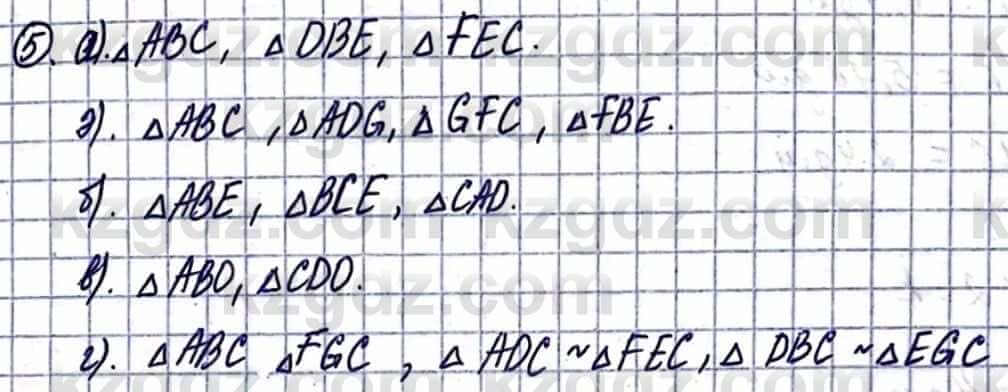 5. а). △ABC, △DBE, △FEC.
ә). △ABC, △ADG, △GFC, △FBE.
б). △ABE, △BCE, △CAD.
в). △ABO, △CDO.
г). △ABC △FGC, △ADC ~ △FEC, △DBC ~ △EGC
kzgdz.com